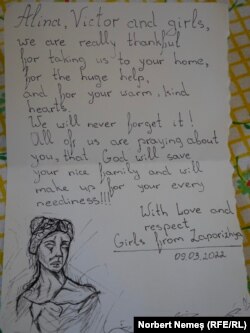 Alina, Victor and girls,
we are really thankful
for taking us to your home,
for the huge help,
and for your warm, kind
hearts.
We will never forget it!
All of us are praying about
you, that God will save
your nice family and will
make up for your every
neediness!!!
With Love and
respect
Girls from Zaporizhya
09.03.2022
Norbert Nemeș (RFE/RL)